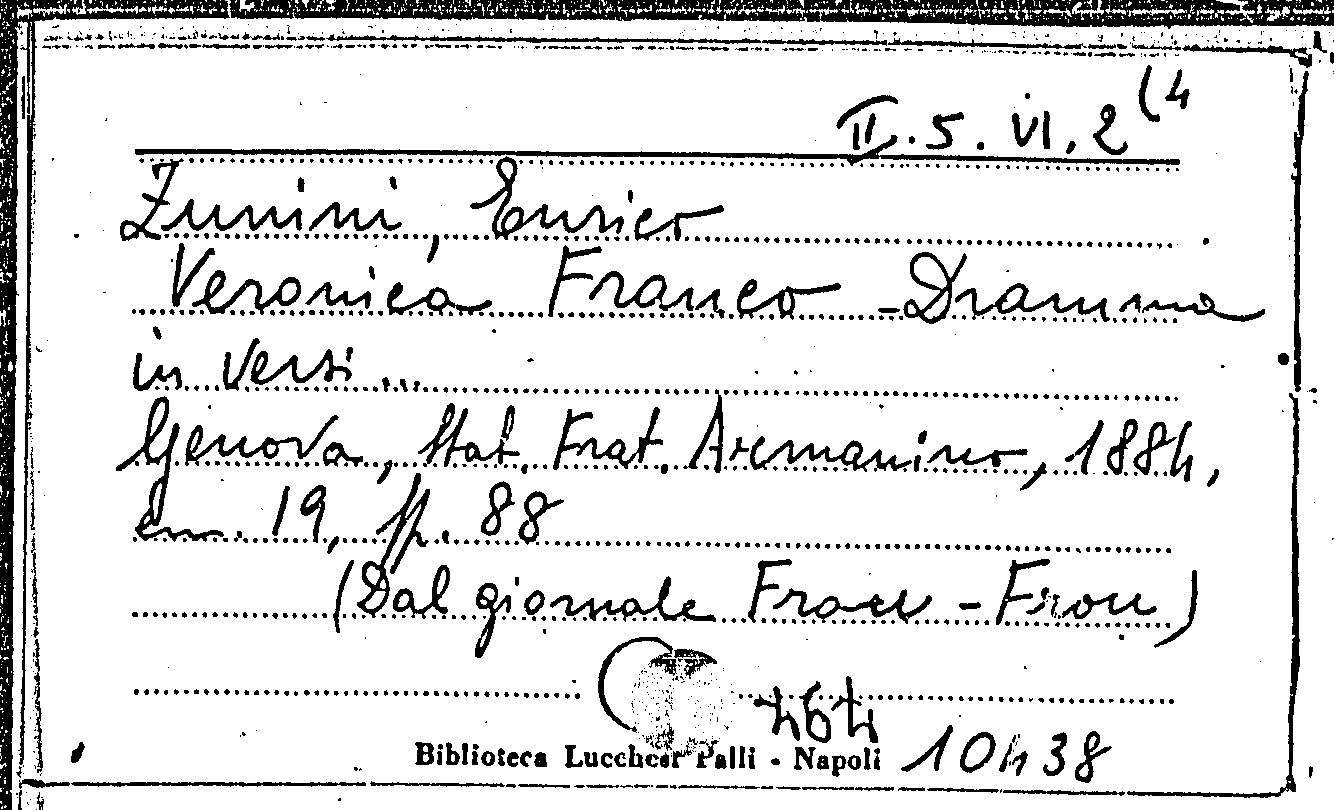 II.5.VI.2 (4
Zunini, Enrico
Veronica Franco - Dramma
in versi ...
Genova, Stat. Frat. Armanino, 1884,
cm. 19, pp. 88
(Dal giornale Frou - Frou)
Biblioteca Lucchesi Palli - Napoli 10438